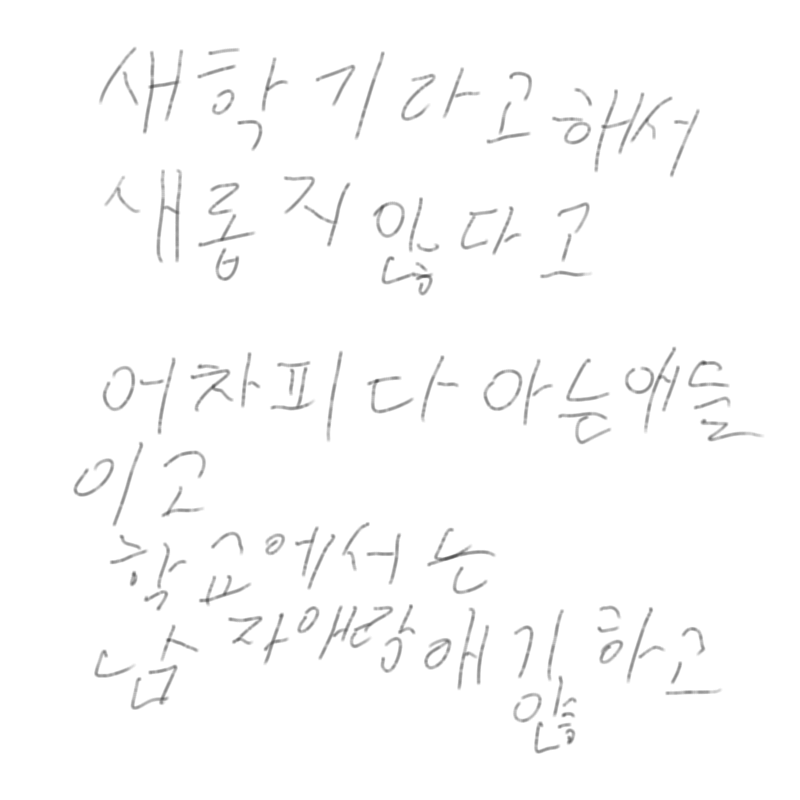 새학기라고해서
새롭지 않다고
어차피 다 아는애들
이고
학교에서는
남자애랑 애기 하고
않